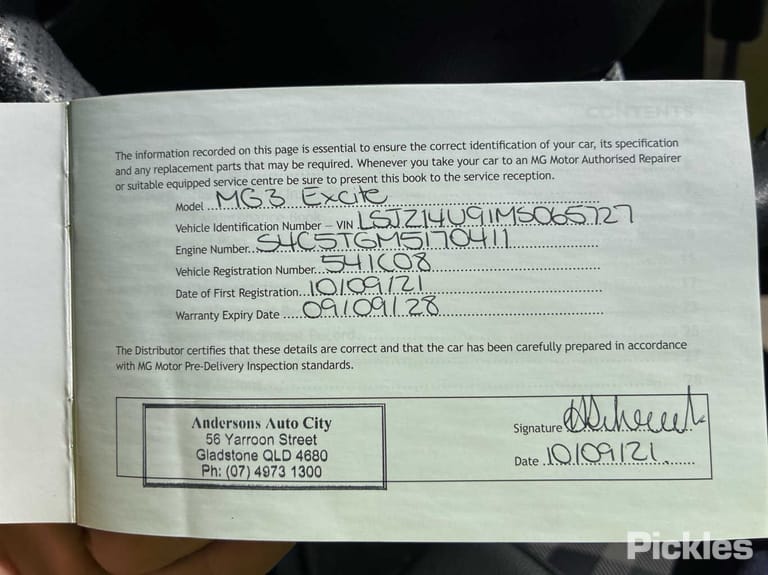 CONTENTS
The information recorded on this page is essential to ensure the correct identification of your car, its specification
and any replacement parts that may be required. Whenever you take your car to an MG Motor Authorised Repairer
or suitable equipped service centre be sure to present this book to the service reception.
Model MG3 Excite
Vehicle Identification Number – VIN LSJZ14U91MS065727
Engine Number S4C5TGM5170411
Vehicle Registration Number 541CO8
Date of First Registration 10/09/21
Warranty Expiry Date 09/09/28
The Distributor certifies that these details are correct and that the car has been carefully prepared in accordance
with MG Motor Pre-Delivery Inspection standards.
Andersons Auto City
56 Yarroon Street
Gladstone QLD 4680
Ph: (07) 4973 1300
Signature
Date 10/09/21
Pickles